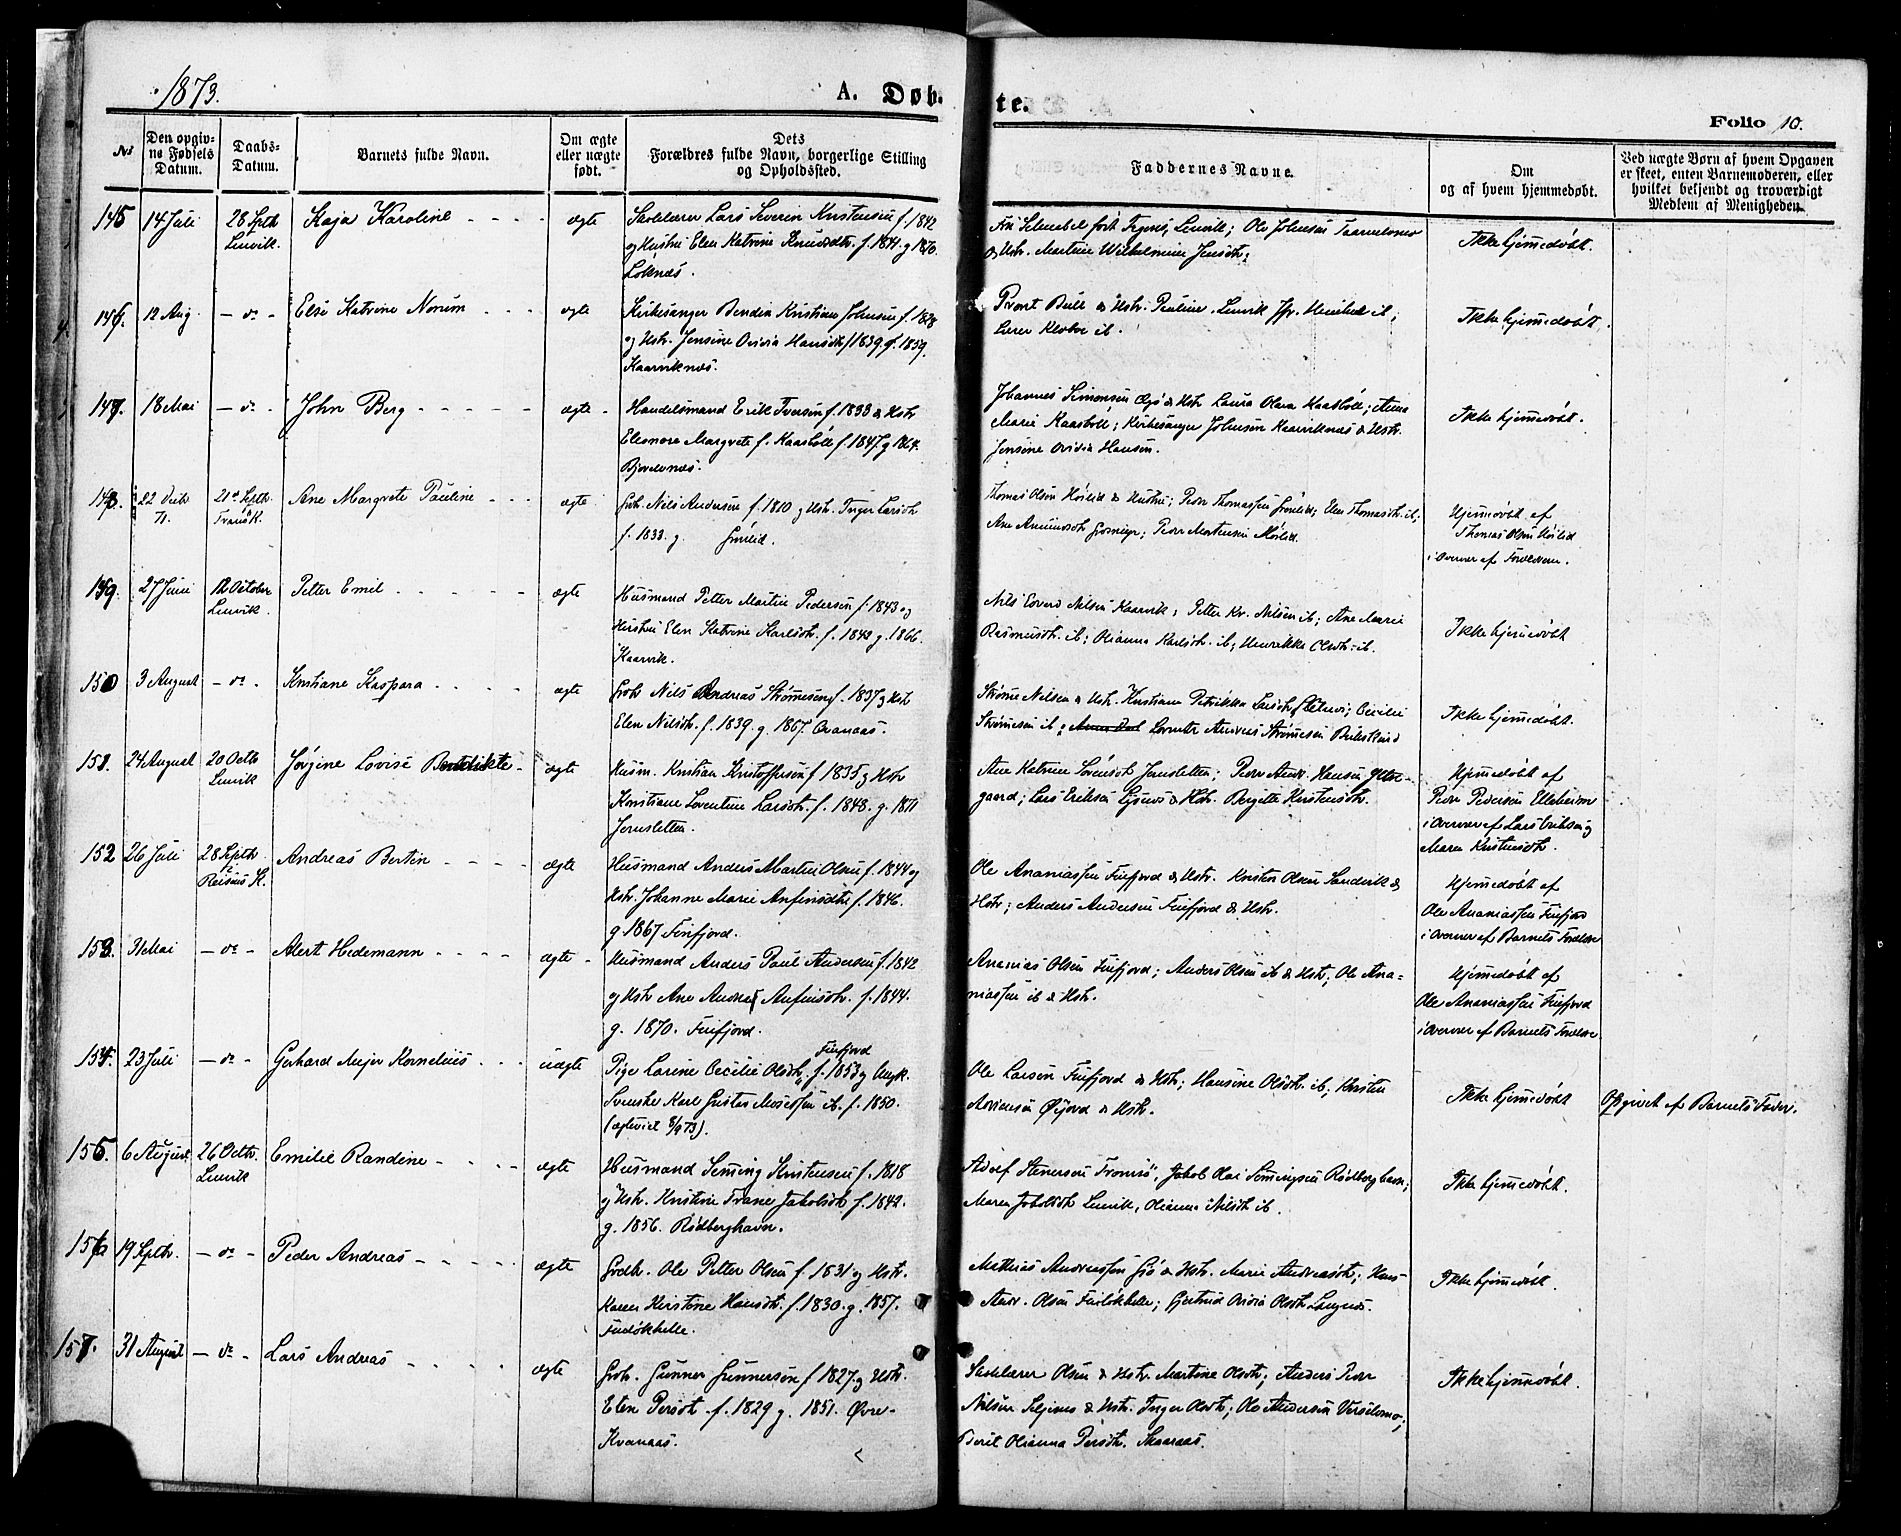 1873.
A. Døb-
te.
Folio 10.
№
Den opgiv-
ne Fødsels
Datum.
Daabs-
Datum.
Barnets fulde Navn.
Om ægte
eller uægte
født.
Dets
Forældres fulde Navn, borgerlige Stilling
og Opholdssted.
Faddernes Navne.
Om
og af hvem hjemmedøbt.
Ved uægte Børn af hvem Opgaven
er skeet, enten Barnemoderen, eller
hvilket bekjendt og troværdigt
Medlem af Menigheden.
145 14 Juli 28 Septbr Kaja Karoline ægte Lars Severin Kristensen f. 1842
Lenvik. og Hustru Elen Katrine Knudsdtr. f. 1844. g 1870.
Løknæs.
Ole Johnsen
& Hstr. Martine Wilhelmine Jensdtr.
Ikke hjemmedøbt.
146. 12 Aug. - do - Else Katrine Norum ægte Kirkesanger Bendix Kristian Johnsen f. 1828
og Hstr. Jensine Ovidia Hansdtr f 1839. g. 1859.
Kaarviknæs.
Provst Bull & Hstr. Pauline Lenvik
Lærer Klokbo ib.
Ikke hjemmedøbt.
147. 18 Mai - do - John Berg ægte Handelsmand Erik Iversen f. 1833 & Hstr
Eleonora Margrete f. Kaasbøll f. 1847 g 1864.
Bjorelvnæs.
Johannes Simonsen & Hstr Laura Olava Kaasbøll; Anna
Marie Kaasbøll; Kirkesanger Johnsen Kaarviknæs & Hstr.
Jensine Ovidia Hansen.
Ikke hjemmedøbt.
148. 22 21de Septbr. Ane Margrete Pauline ægte Gbr. Nils Andersen f. 1810 og Hstr. Inger Larsdtr
71. Tranø K. f. 1833. g.
Thomas Olsen & Hustru; Peder Thomassen Elen Thomasdtr. ib;
Ane Amundsdtr Peder Mortensen
Hjemmedøbt af
Thomas Olsen
i Overvær af Forældrene.
149. 27 Juni 12 October Petter Emil ægte Husmand Petter Martin Pedersen f. 1843 og
Lenvik Hustru Elen Katrine Karlsdtr. f. 1840 g. 1866.
Kaarvik.
Nils Edvard Nilsen Kaarvik; Petter Kr. Nilsen ib; Ane Marie
Rasmusdtr. ib; Olianna Karlsdtr. ib; Henrikke Olsdtr. ib.
Ikke hjemmedøbt
150 3 August - do - Kristiane Kaspara ægte Gbr Nils Andreas Strømesen f. 1837 g Hstr
Elen Nilsdtr. f. 1839. g. 1867.
Strøme Nilsen & Hstr. Kristiana Petrikka Larsdtr. Cecilie
Strømesen ib; Lorentz Andreas Strømesen
Ikke hjemmedøbt.
151. 24 August 20 Octbr Jørgine Lovise Benedikte ægte Husm. Kristian Kristoffersen f. 1835 g Hstr
Lenvik Kristiane Lorentine Larsdtr. f. 1848. g. 1871
Jernsletten.
Ane Katrine Sørensdtr Jernsletten; Peder Andr. Hansen
gaard; Lars Eriksen & Hstr. Bergitte Kristensdtr.
Hjemmedøbt af
Peder Pedersen
i Overvær af Lars Eriksen g
Maren Kristensdtr.
152 26 Juli 28 Septbr Andreas Bertin ægte Husmand Anders Martin Olsen f. 1844 og
i Hstr. Johanne Marie Anfinsdtr f. 1846.
g. 1867 Finfjord.
Ole Ananiassen Finfjord & Hstr. Kristen Olsen Sandvik &
Hstr; Anders Andersen Finfjord & Hstr.
Hjemmedøbt af
Ole Ananiassen Finfjord
i Overvær af Barnets Forældre
153. Mai - do - Alert Hedemann ægte Husmand Anders Paul Andersen f. 1842
og Hstr Ane Andrea Anfinsdtr. f. 1844.
g. 1870. Finfjord.
Ananias Olsen Finfjord; Anders Olsen ib & Hstr; Ole Ana-
niassen ib & Hstr.
Hjemmedøbt af
Ole Ananiassen Finfjord
i Overvær af Barnets Forældre
154. 23 Juli - do - Gerhard Mejer Kornelius uægte Pige Larine Cecilie Olsdtr. Finfjord f. 1853 g Ungk.
Svenske Karl Gustav Mosessen ib. f. 1850.
(ægteviet 8/9 73).
Ole Larsen Finfjord & Hstr; Hansine Olsdtr. ib; Kristen
Øijord & Hstr.
Ikke hjemmedøbt
Opgivet af Barnets Fader.
155. 6 August 26 Octbr. Emilie Randine ægte Husmand Kristensen f. 1818
Lenvik g Hstr. Kristine Trane Jakobsdtr f. 1842.
g. 1856. Rødberghavn.
Adolf Stenersen Tromsø; Jakob Olai Rødberghavn;
Maren Jakobsdtr Lenvik, Olianna Nilsdtr ib.
Ikke hjemmedøbt.
156 19 Septbr. - do - Peder Andreas ægte Grdb. Ole Petter Olsen f. 1831 og Hstr.
Karen Kirstine Hansdtr. f. 1830. g. 1857.
Mathias Andreassen & Hstr. Marie Andreasdtr; Hans
Andr. Olsen Gjertrud Ovidia Olsdtr
Ikke hjemmedøbt.
157. 31 August - do - Lars Andreas ægte Grdb. Gunner Gunnersen f 1827. g Hstr.
Elen Persdt. f. 1829 g. 1851. Øvre-
Kvanaas.
Olsen & Hstr. Martine Olsdtr; Anders Peder
Nilsen & Hstr. Inger Olsdtr; Ole Andersen
Berit Olianna Persdtr. Skaaraas.
Ikke hjemmedøbt.